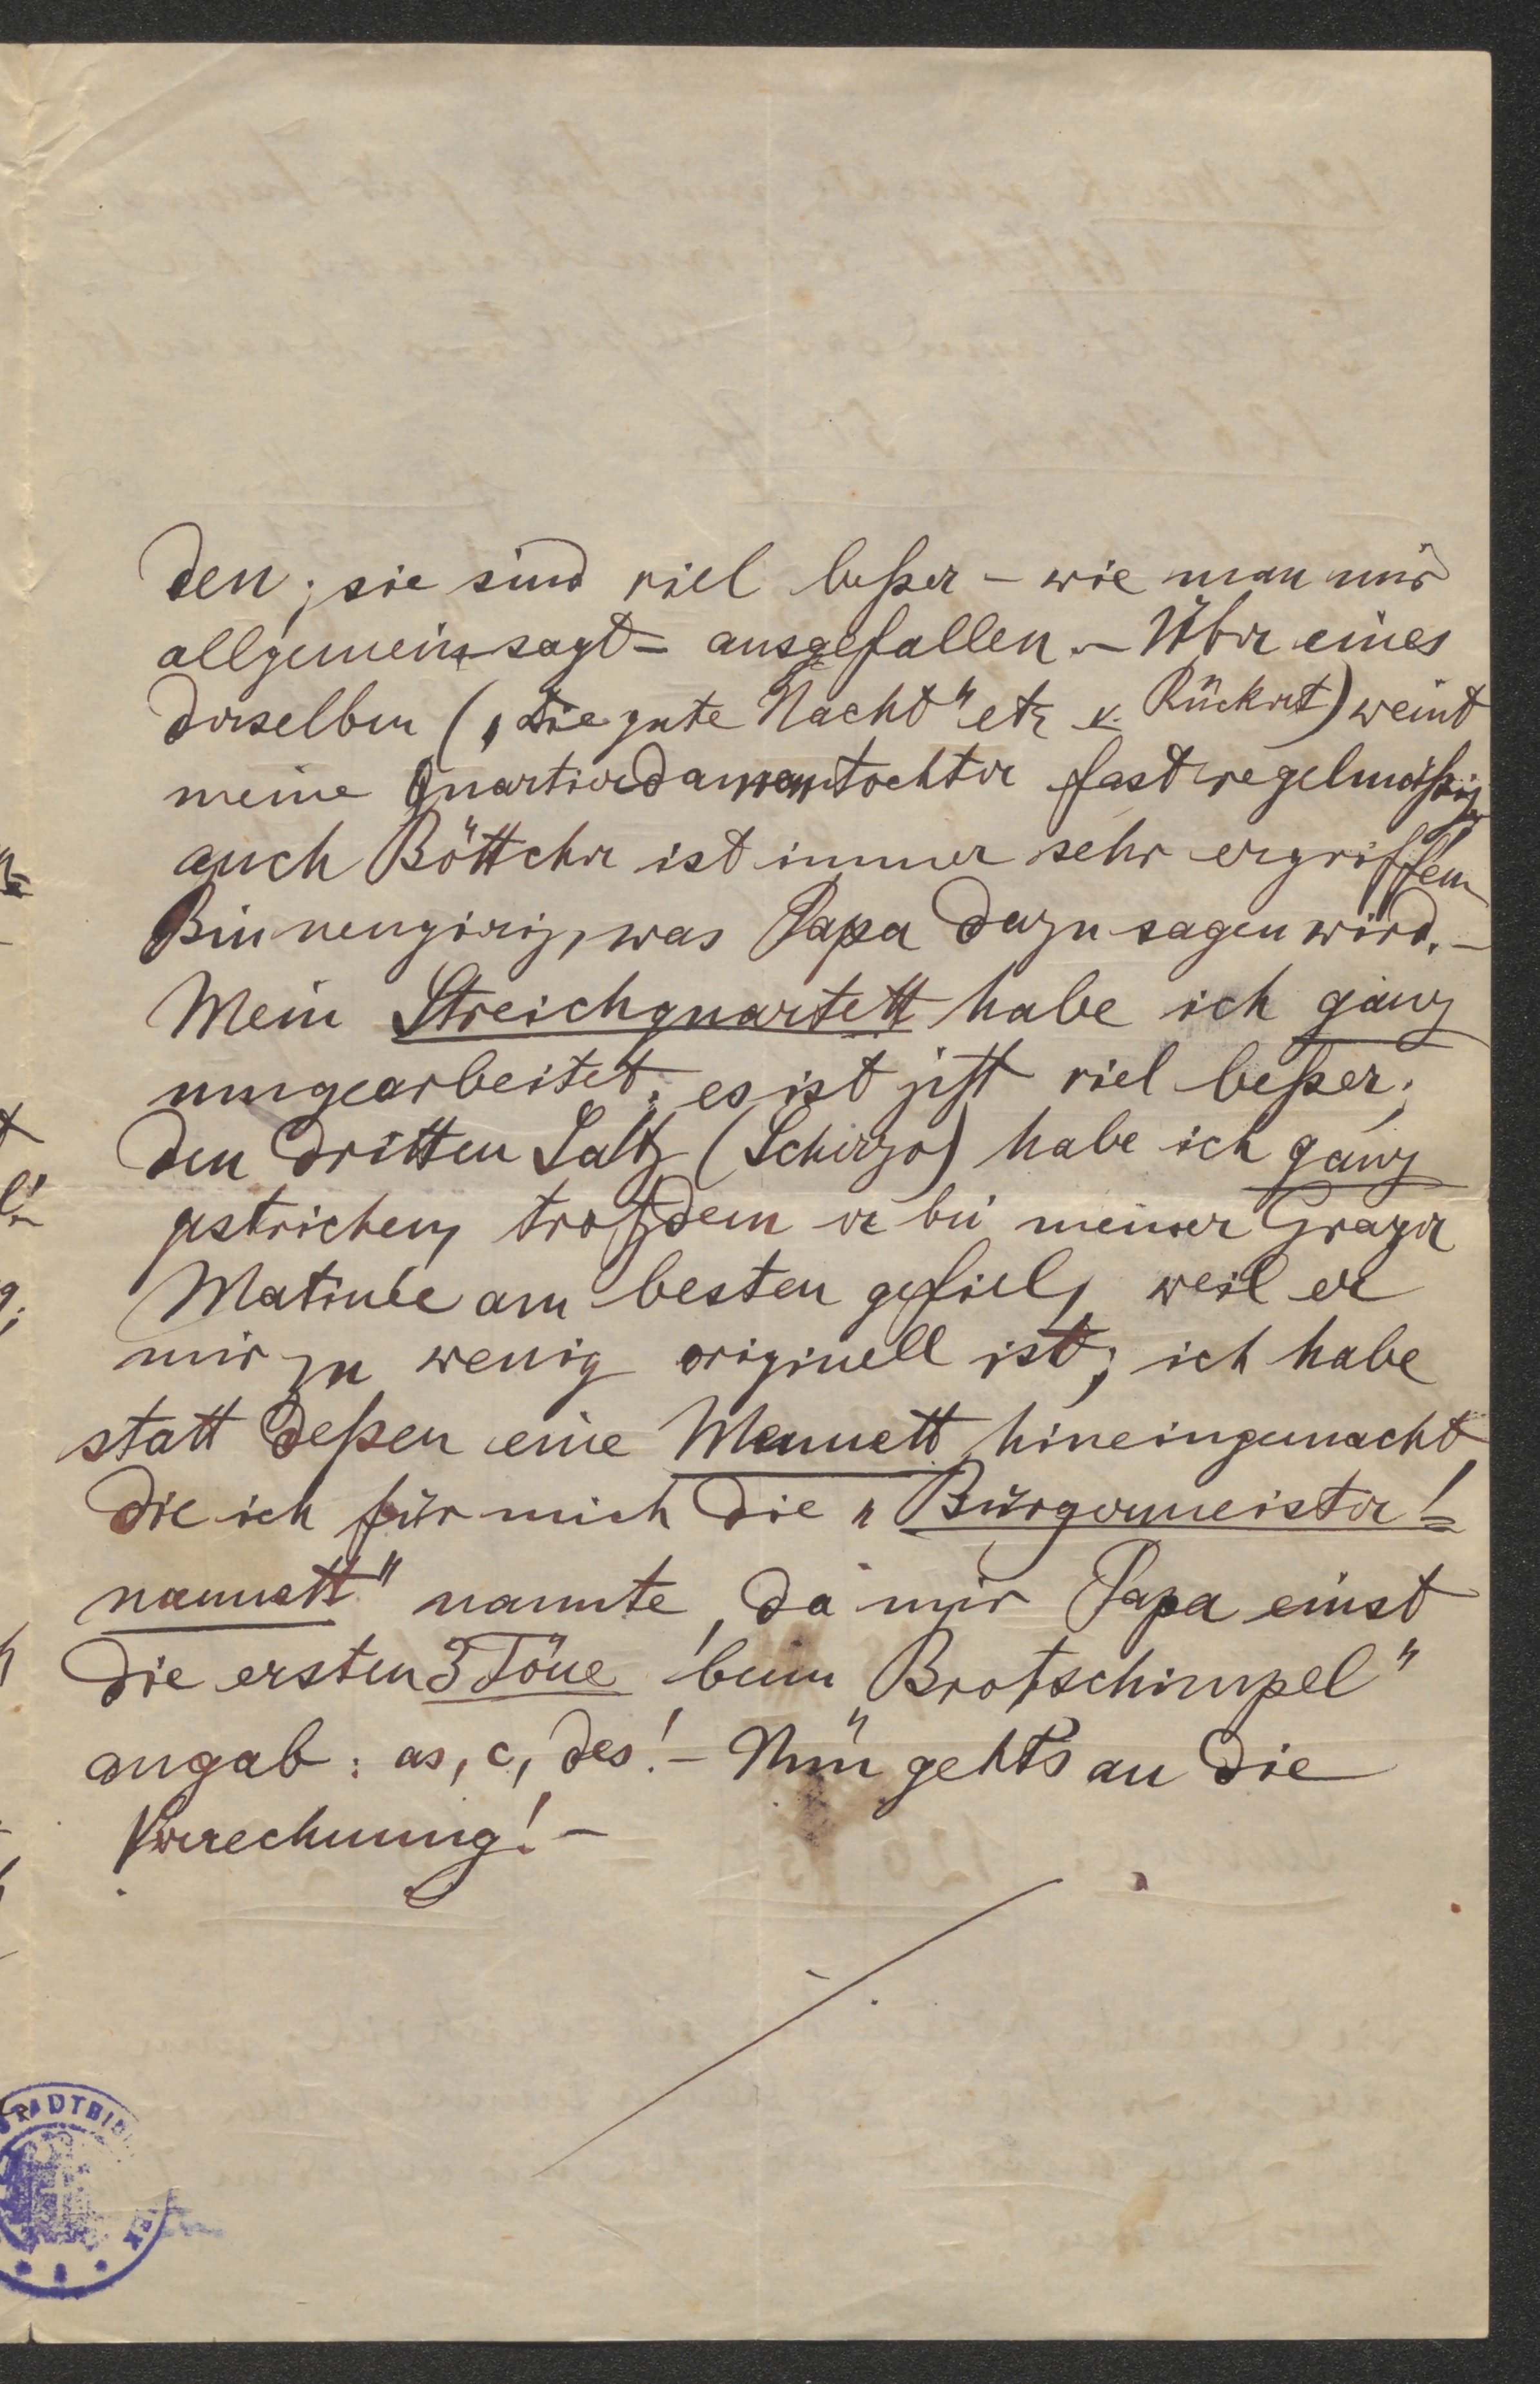 den; sie sind viel beßer – wie man mir
allgemein sagt – ausgefallen. – Über eines
derselben („Die gute Nacht" etz v. Rückert) weint
meine Quartierdamentochter fast regelmäßig
auch Böttcher ist immer sehr ergriffen
Bin neugierig, was Papa dazu sagen wird. –
Mein Streichquartett habe ich ganz
umgearbeitet; es ist jetzt viel beßer;
den dritten Satz (Scherzo) habe ich ganz
gestrichen, trotzdem er bei meiner Grazer
Matinée am besten gefiel, weil er
mir zu wenig originell ist; ich habe
statt deßen eine Menuett hineingemacht,
die ich für mich die „Bürgermeister!=
nannte, da mir Papa einst
die ersten 3 Töne beim Brotschimpel"
angab: as, c, des! – Nun geht's an die
Verrechnung! –
STADTBI